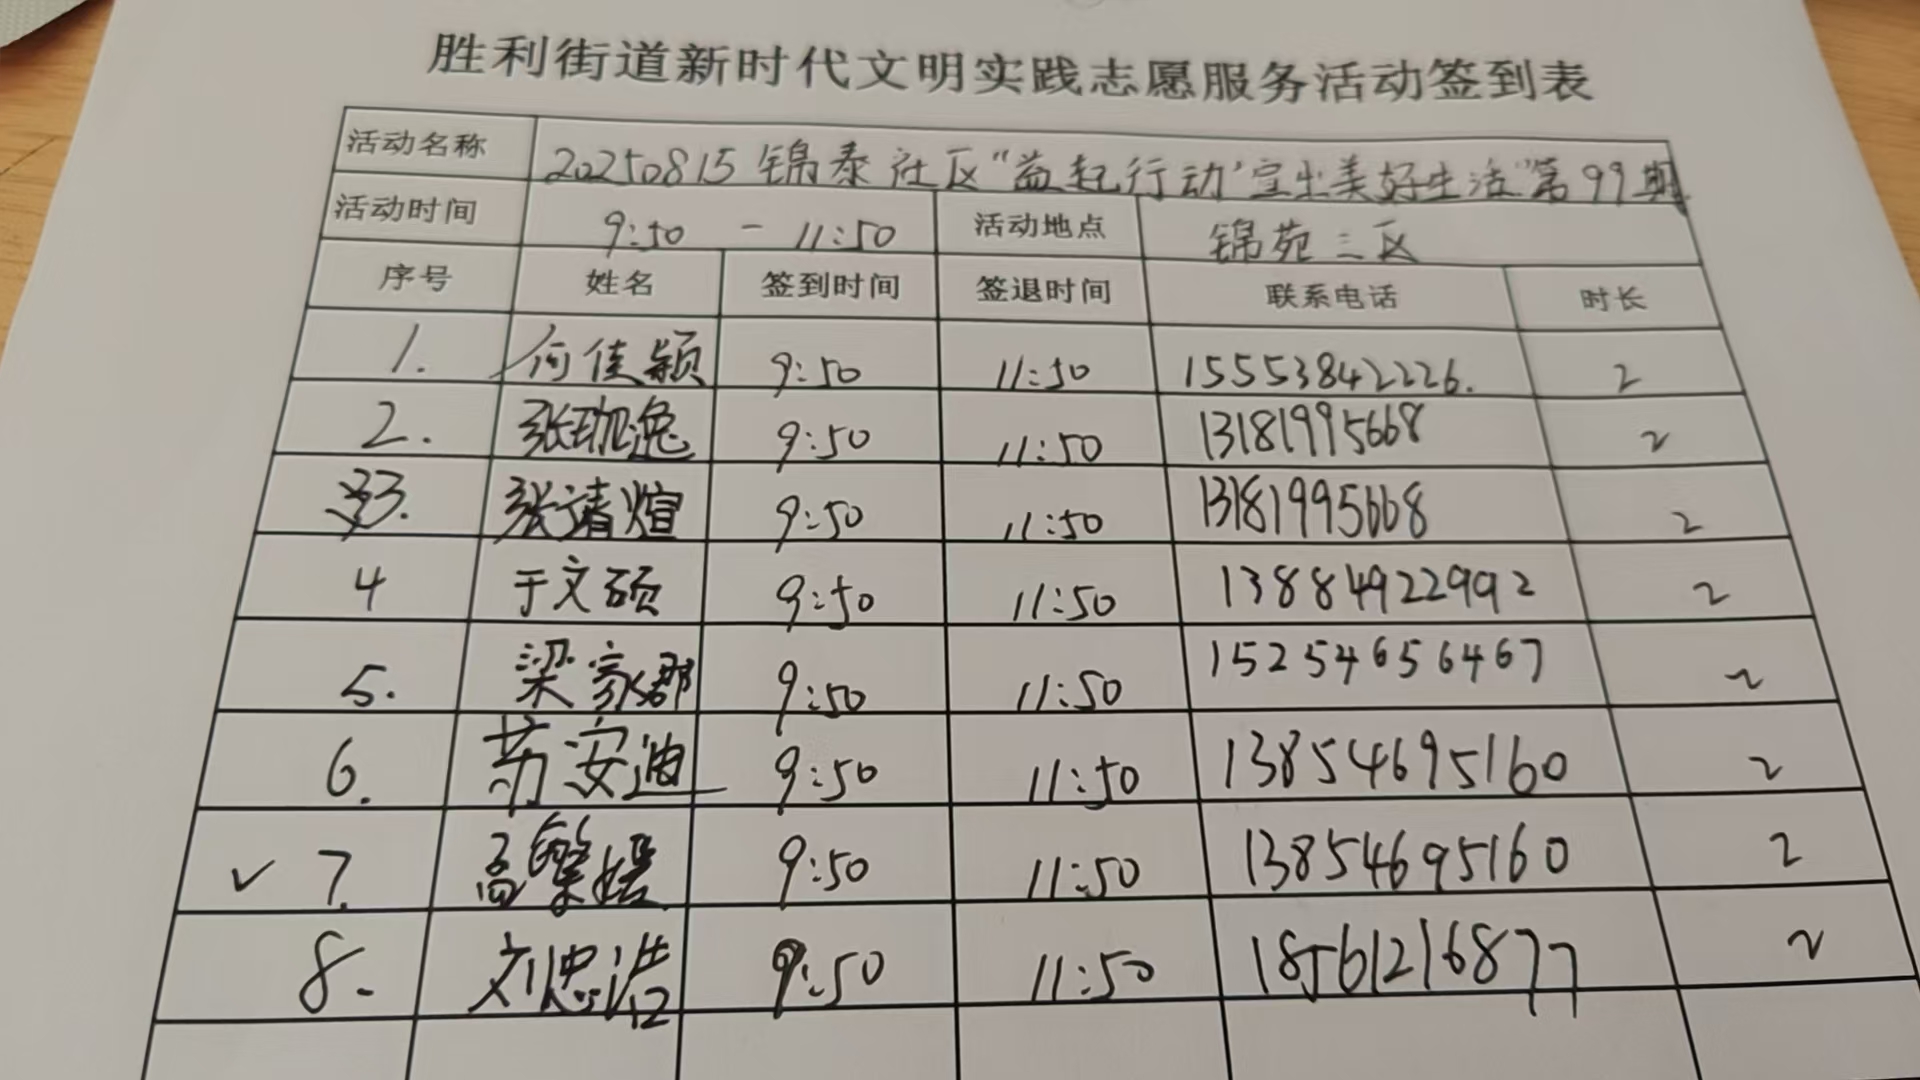 胜利街道新时代文明实践志愿服务活动签到表
活动名称 20250815锦泰社区"益起行动'宜出美好生活"第99期
活动时间 9:50 - 11:50 活动地点 锦苑三区
序号 姓名 签到时间 签退时间 联系电话 时长
1. 何佳颖 9:50 11:50 15553842226. 2
2. 张珈逸 9:50 11:50 13181995668 2
3. 张靖煊 9:50 11:50 13181995668 2
4 于文硕 9:50 11:50 13884922992 2
5. 梁家郡 9:50 11:50 15254656467 2
6. 苏安迪 9:50 11:50 13854695160 2
✓ 7. 高繁媛 9:50 11:50 13854695160 2
8. 刘思浩 9:50 11:50 18561216877 2